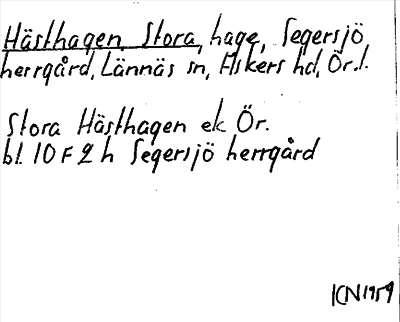 Hästhagen, Stora, hage, Segersjö
herrgård, Lännäs sn, Askers hd, Ör. l.
Stora Hästhagen ek Ör.
bl. 10 F 2 h Segersjö herrgård
KN1959